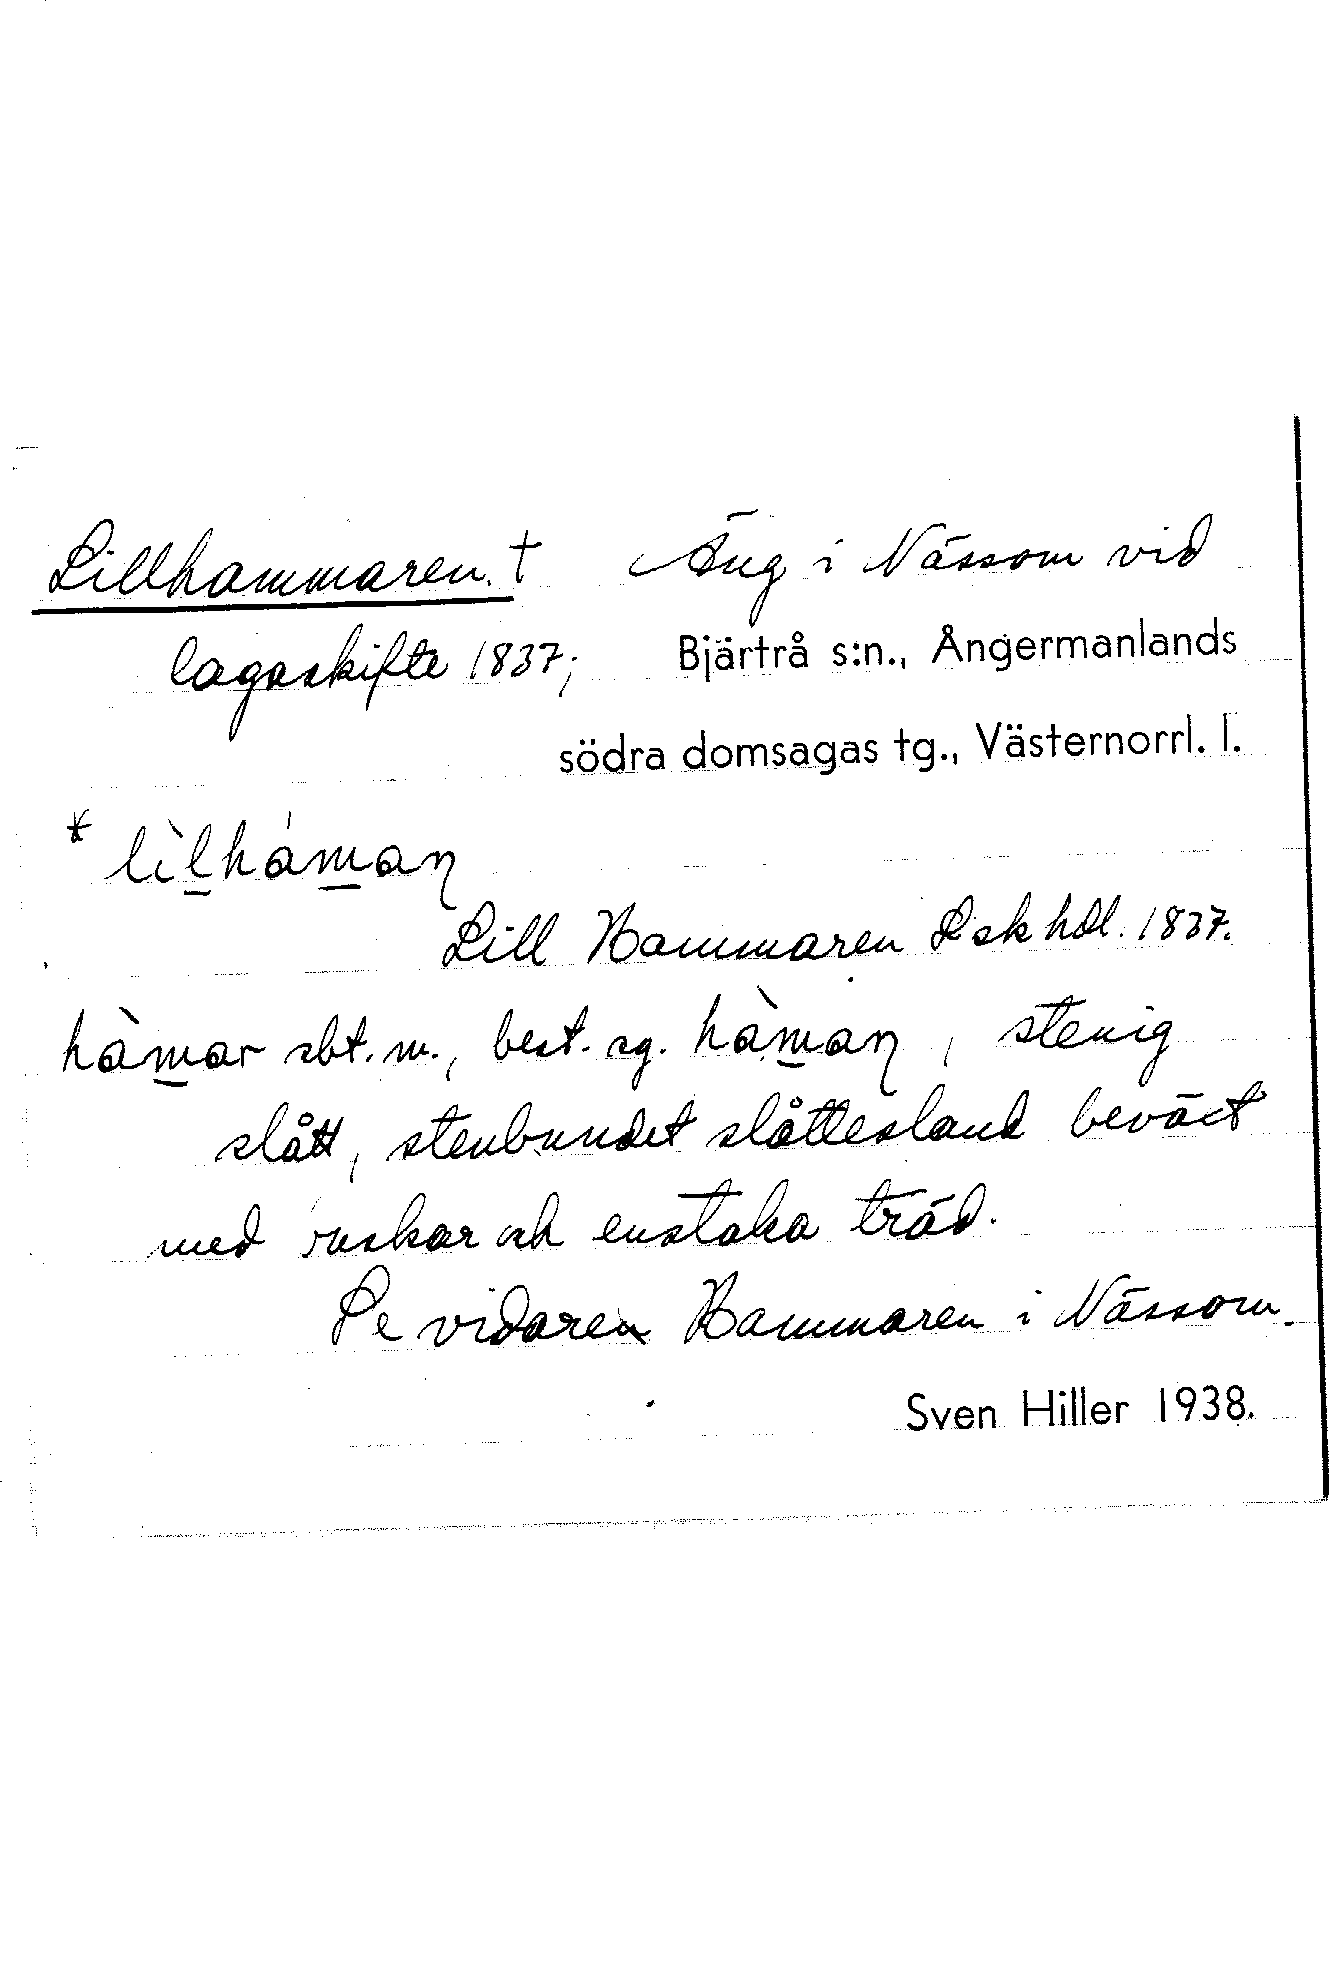 Lillhammaren. † Äng i Nässom vid
lagaskifte 1837; Bjärtrå s:n., Ångermanlands
södra domsagas tg., Västernorrl. l.
* lìl̲hám̲aɳ
Lill Hammaren Lsk hdl. 1837.
hàm̲ar sbt. m., best. sg. hàm̲aɳ, stenig
slått, stenbundet slåttesland beväxt
med ruskar och enstaka träd.
Se vidare Hammaren i Nässom.
Sven Hiller 1938.